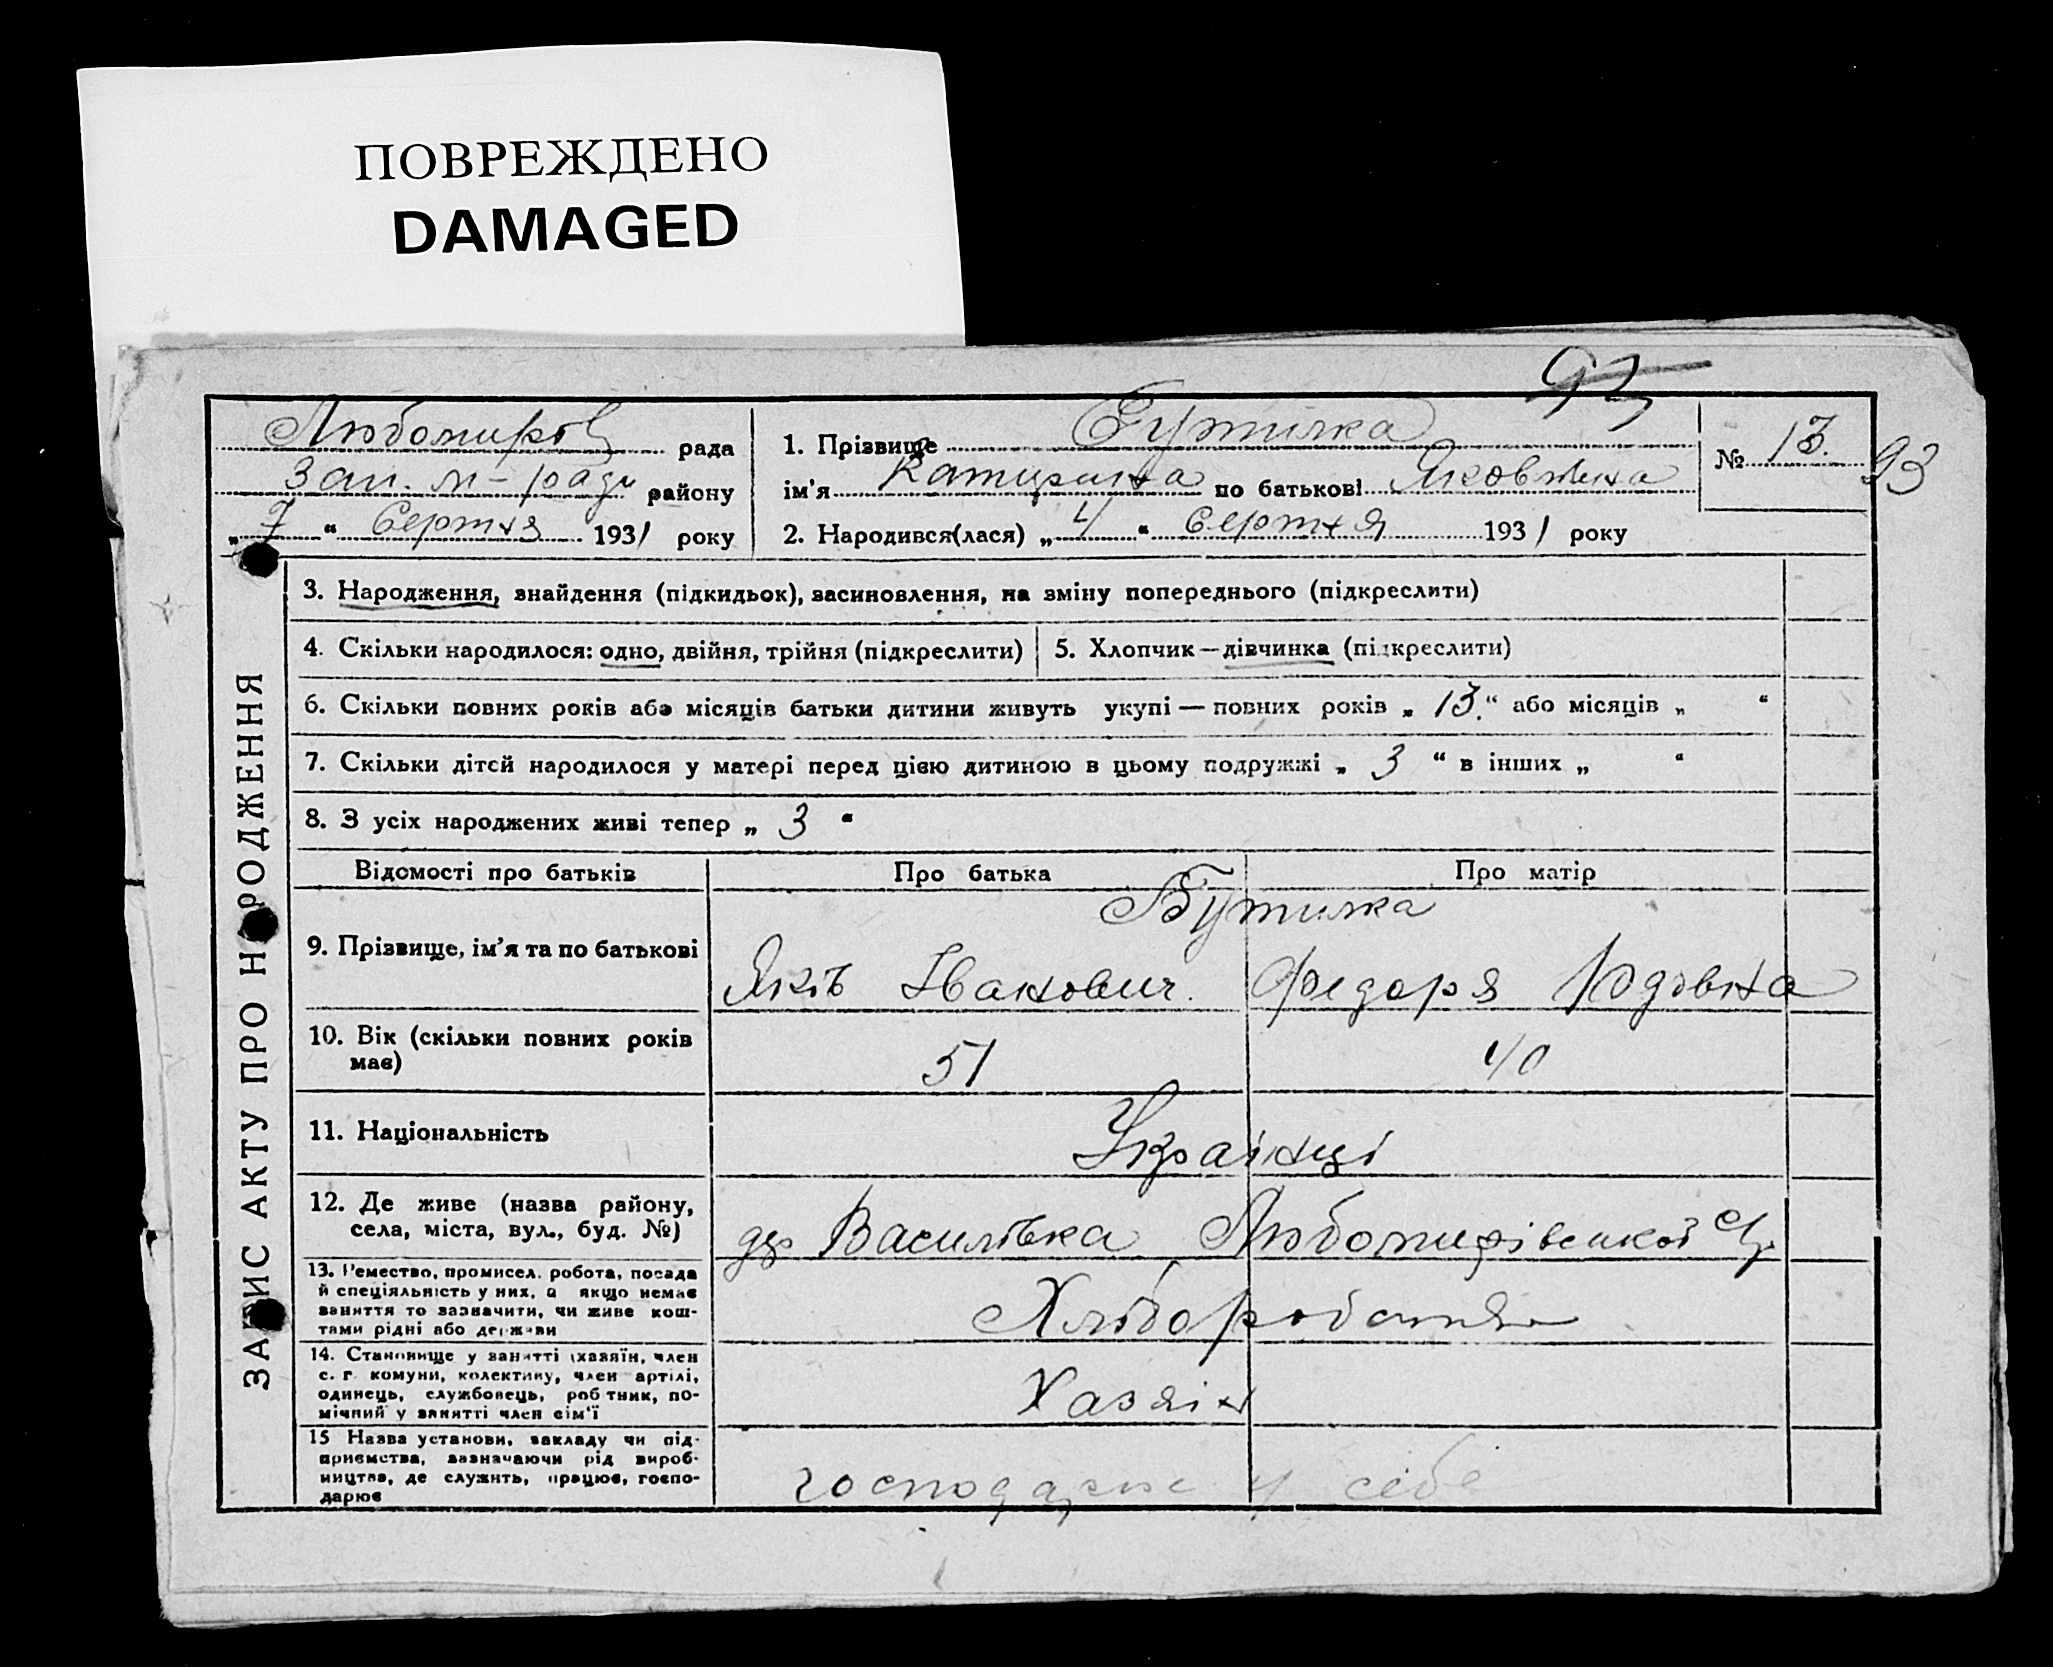 ПОВРЕЖДЕНО
DAMAGED
93
Любомирів рада
Зап. м-ради району
„7“ Серпня 1931 року
1. Прізвище Бутилка
ім'я Катирина по батькові Яковлівна
2. Народився(лася) „4“ Серпня 1931 року
№ 13. 93
ЗАПИС АКТУ ПРО НАРОДЖЕННЯ
3. Народження, знайдення (підкидьок), засиновлення, на зміну попереднього (підкреслити)
4. Скільки народилося: одно, двійня, трійня (підкреслити) 5. Хлопчик—дівчинка (підкреслити)
6. Скільки повних років або місяців батьки дитини живуть укупі — повних років „13.“ або місяців „ “
7. Скільки дітей народилося у матері перед цією дитиною в цьому подружжі „3“ в інших „ “
8. З усіх народжених живі тепер „3“
Відомості про батьків Про батька Про матір
Бутилка
9. Прізвище, ім'я та по батькові Яків Іванович. Федоря
10. Вік (скільки повних років 51 40
має)
11. Національність Українці
12. Де живе (назва району,
села, міста, вул., буд. №) Василівка Любомирівської
13. Ремество, промисел, робота, посада
й спеціяльність у них, а якщо немає
заняття то зазначити, чи живе кош-
тами рідні або держави
Хліборобство
14. Становище у занятті (хазяїн, член
с. г. комуни, колективу, член артілі,
одинець, службовець, робітник, по-
мічний у занятті член сім'ї
Хазяїн
15 Назва установи, закладу чи під-
приємства, зазначаючи рід вироб-
ництва, де служить, працює, госпо-
дарює
господарює у себе